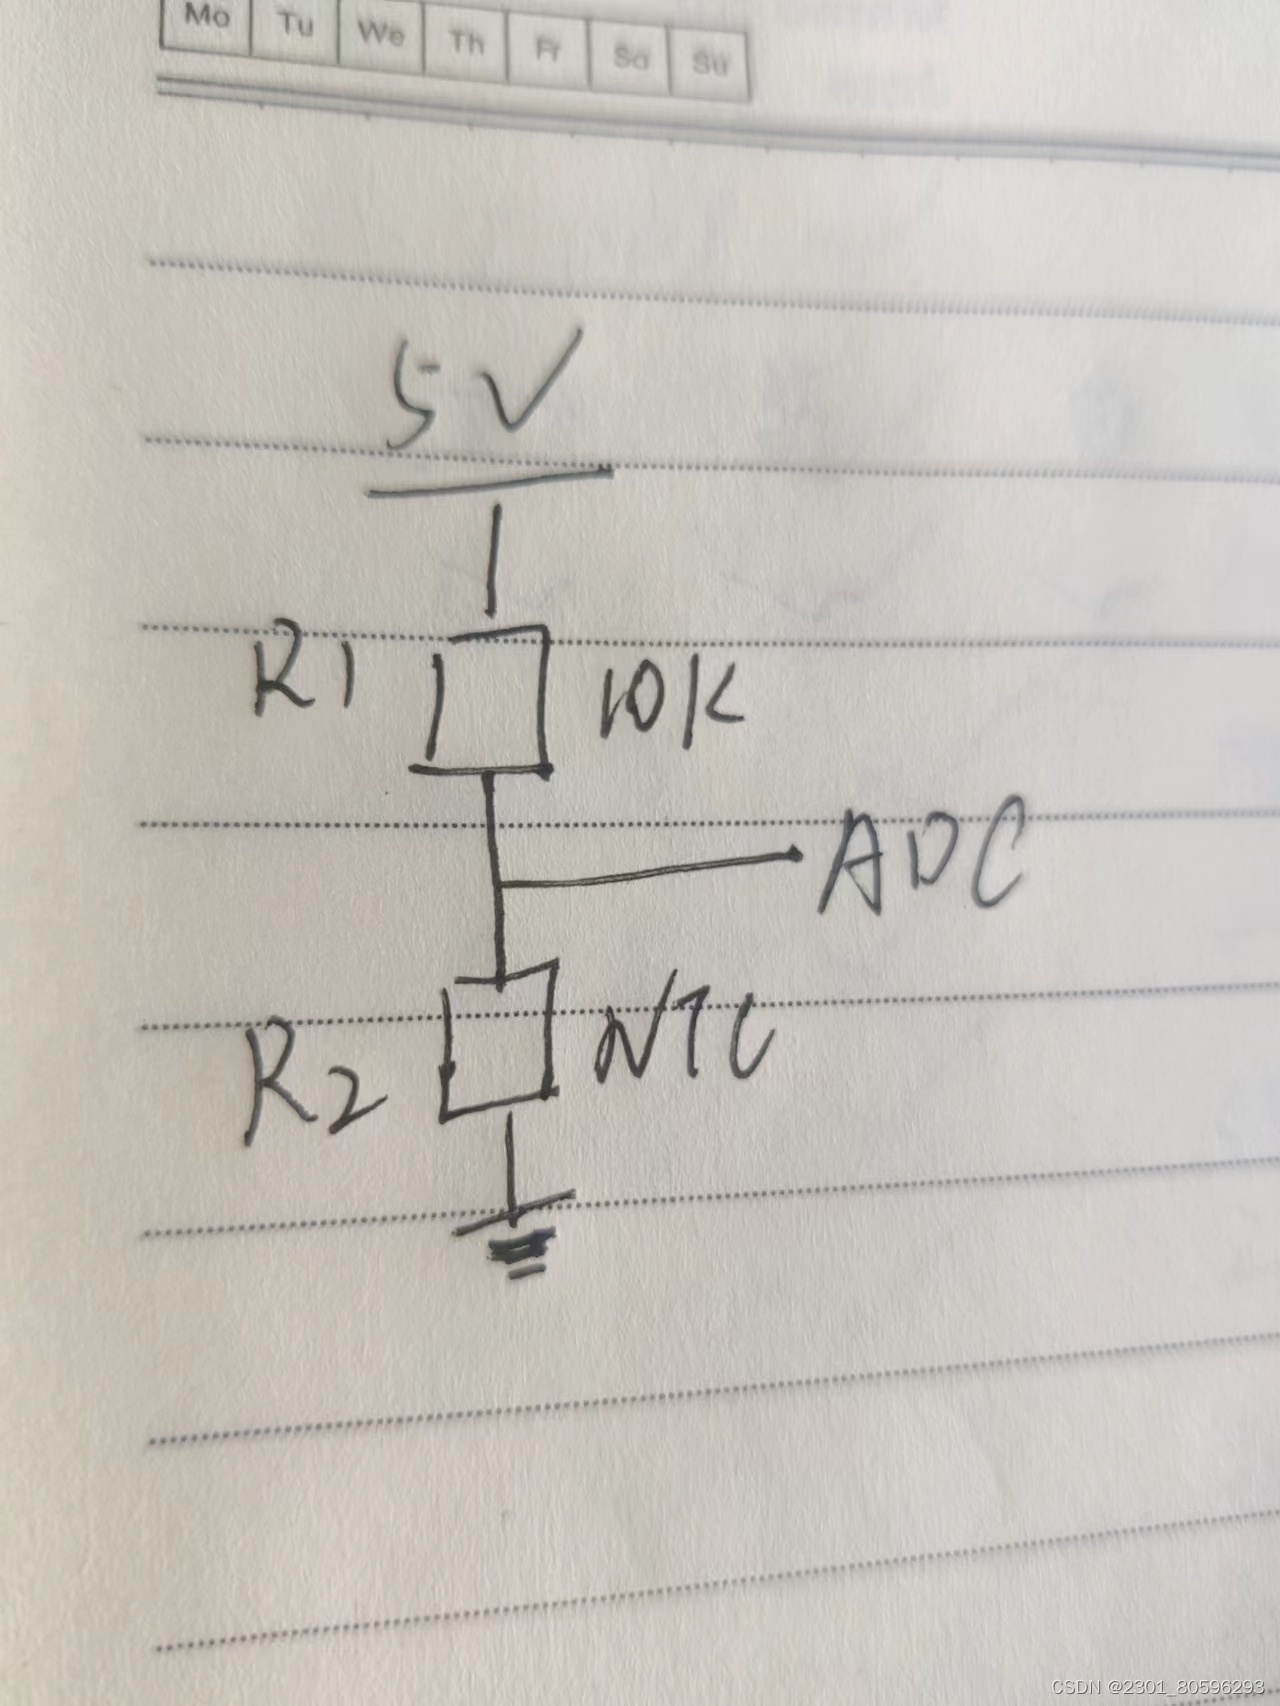 Mo Tu We Th Fr Sa Su
5V
R1 10K
ADC
R2 NTC
CSDN @2301_80596293